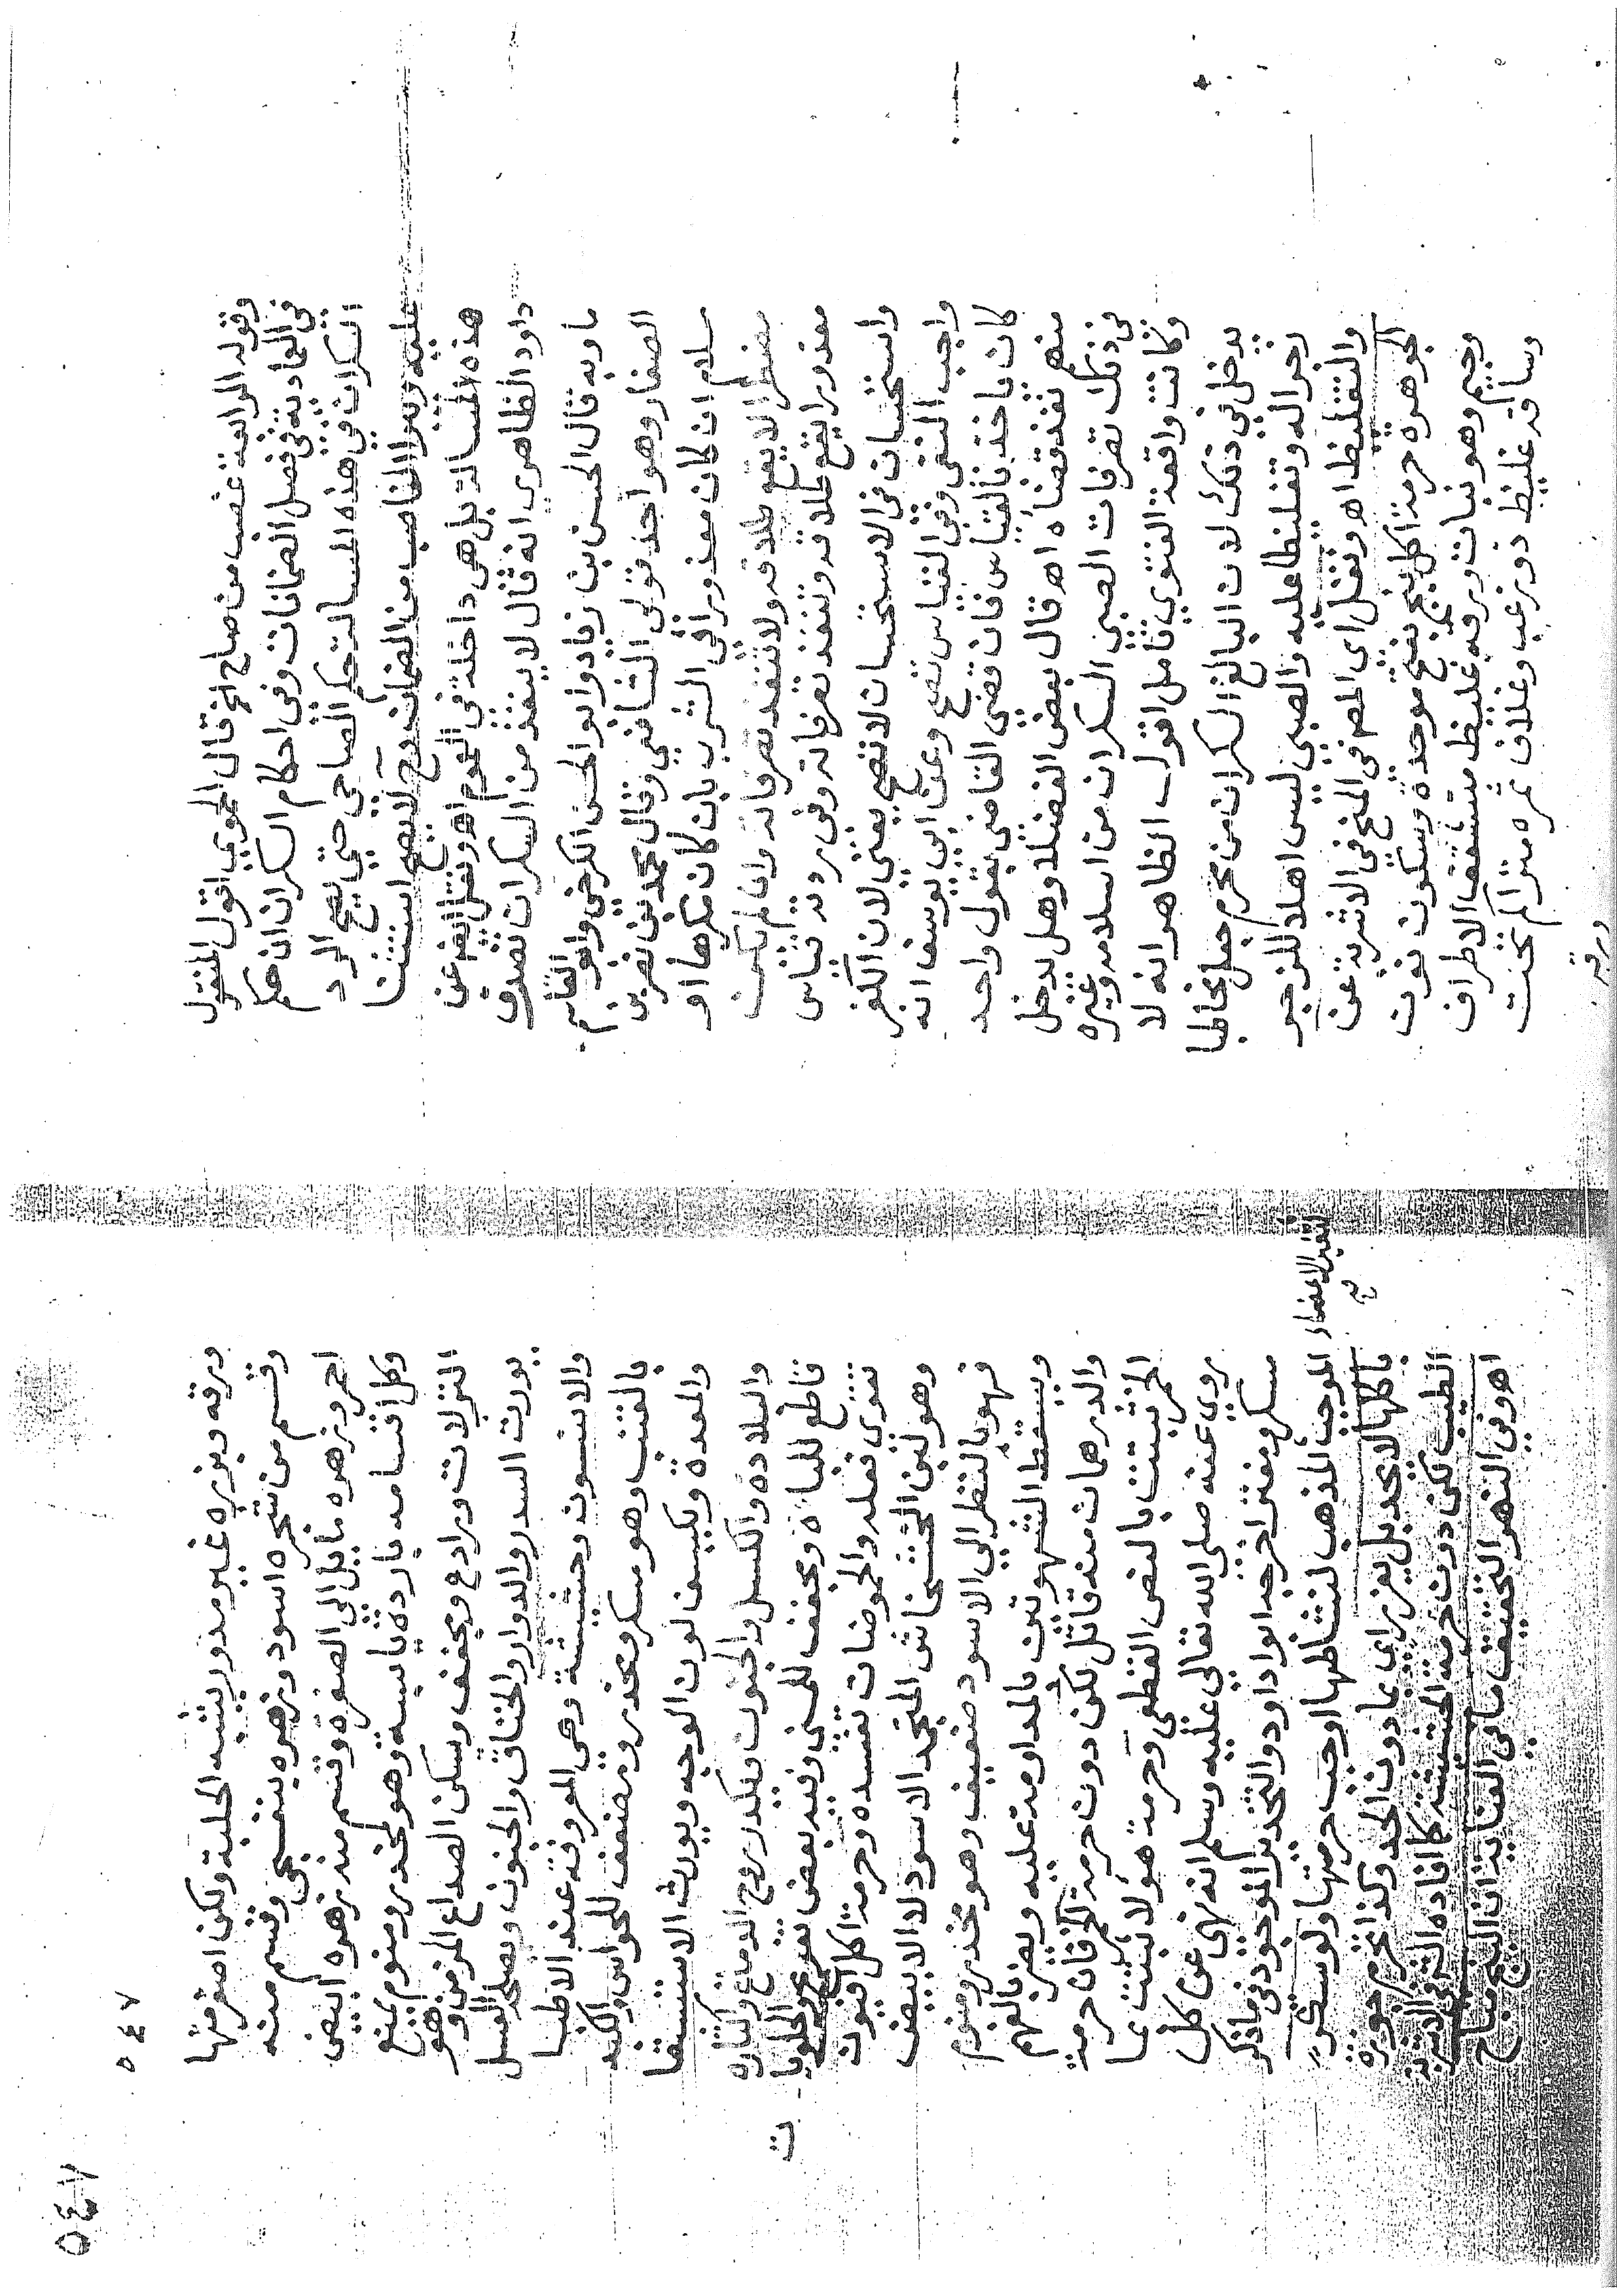 وقوله الرابعة غصب من صاح الخ قال الحموي اقول المنقول
في العمادية في فصل الضمانات وفي احكام السكران ان حكم
السكران في هذه المسالة حكم الصاحي حتي يصح الرد
عليه ويبرا الغاصب من الضمان وح لا يصح استثنا
هذه المسالة بل هي داخلة في العموم اهو ونقل ايضا عن
داود الظاهري انه قال لا ينفذ من السكران تصرف
ما وبه قال الحسن بن زياد وابو الحسن الكرخي وابو القاسم
الصفار وهو احد قولي الشافعي وقال محمد بن نصر بن
سلام ان كان معذورا في الشرب بان كان مكرها او
مضطرا لا يقع طلاقه ولا تنفذ تصرفاته وان لم يكن
معذورا يقع طلاقه وتنفذ تصرفاته وفي ردته قياس
واستحسان في الاستحسان لا تصح يعني لان الكفر
واجب النفي وفي القياس تصح وعن ابي يوسف انه
كان ياخذ بالقياس فان قضى القاضي بقول واحد
منهم نفذ قضاه اهـ قال بعض الفضلا وهل يدخل
في ذلك تصرفات الصبي السكران من اسلامه وغيره
وكانت واقعة الفتوي تامل اقول الظاهر انه لا
يدخل في ذلك لان البالغ السكران من محرم جعل مخاطبا
زجرا له وتغليظا عليه والصبي ليس اهلا للزجر
والتغليظ اهـ ونقل اي المص في المنح في الاشربة عن
الجوهرة حرمة اكل بنج بفتح موحدة وسكون نون
وجيم وهو نبات ورقه غليظ متشقق الاطراف
وساقه غليظ ذو زغب وغلاف ثمره متراكم تحت
ورقه
٥٤٧
٥٤٧
ورقه وبزره غير مدور يشبه الحلبة ولكن اصغر منها
وقسم من شجره اسود وزهره بنفسجي وقسم منه
احمر وزهره مايل الي الصفرة وقسم منه زهره ابيض
وكل اقسامه باردة يابسة وهو مخدر ومنوم يمنع
النزلات ورادع ومجفف وسكن الصداع المزمن وهو
يورث السدر والدوار والخناق والجنون ويصلحه العسل
والانيسون وحشيشة وهي المعروفة عند الاطبا
بالقنب وهو مسكر ومخدر ومضعف للحواس والكبد
والمعدة ويكسف لون الوجه ويورث الاستسقا
والبلادة والكسل والجنون ويكدر روح الدماغ واكثاره
قاطع للباه ومجفف للمني وفيه بعض تفريح والحلويا ت
تقوى فعله والحموضات تفسده وحرمة اكل افيون
وهو لبن الخشخاش المتجمد الاسود لا الابيض
فهو بالنظر الي الاسود ضعيف وهو مخدر ومنوم
ويسقط الشهوتين بالمداومة عليه ويضر بالفهم
والدرهمان منه قاتل لكن دون حرمة الخمر فان حرمة
الخمر ثبتت بالنص القطعي وحرمة هولا ثبتت بما
روي عنه صلى الله تعالي عليه وسلم انه نهي عن كل
مسكر ومفتر اخرجه ابو داود والتخدير الموجود فيما ذكر
الموجب لذهاب نشاطها اوجب حرمتها ولو سكر
باكلها لا يحد بل يعزر اي بما دون الحد وكذا تحرم جوزة
الطيب لكن دون حرمة الحشيشة كما افاده التمرتاشي
اهـ وفي النهر التحقيق ما في العناية ان البنج مباح